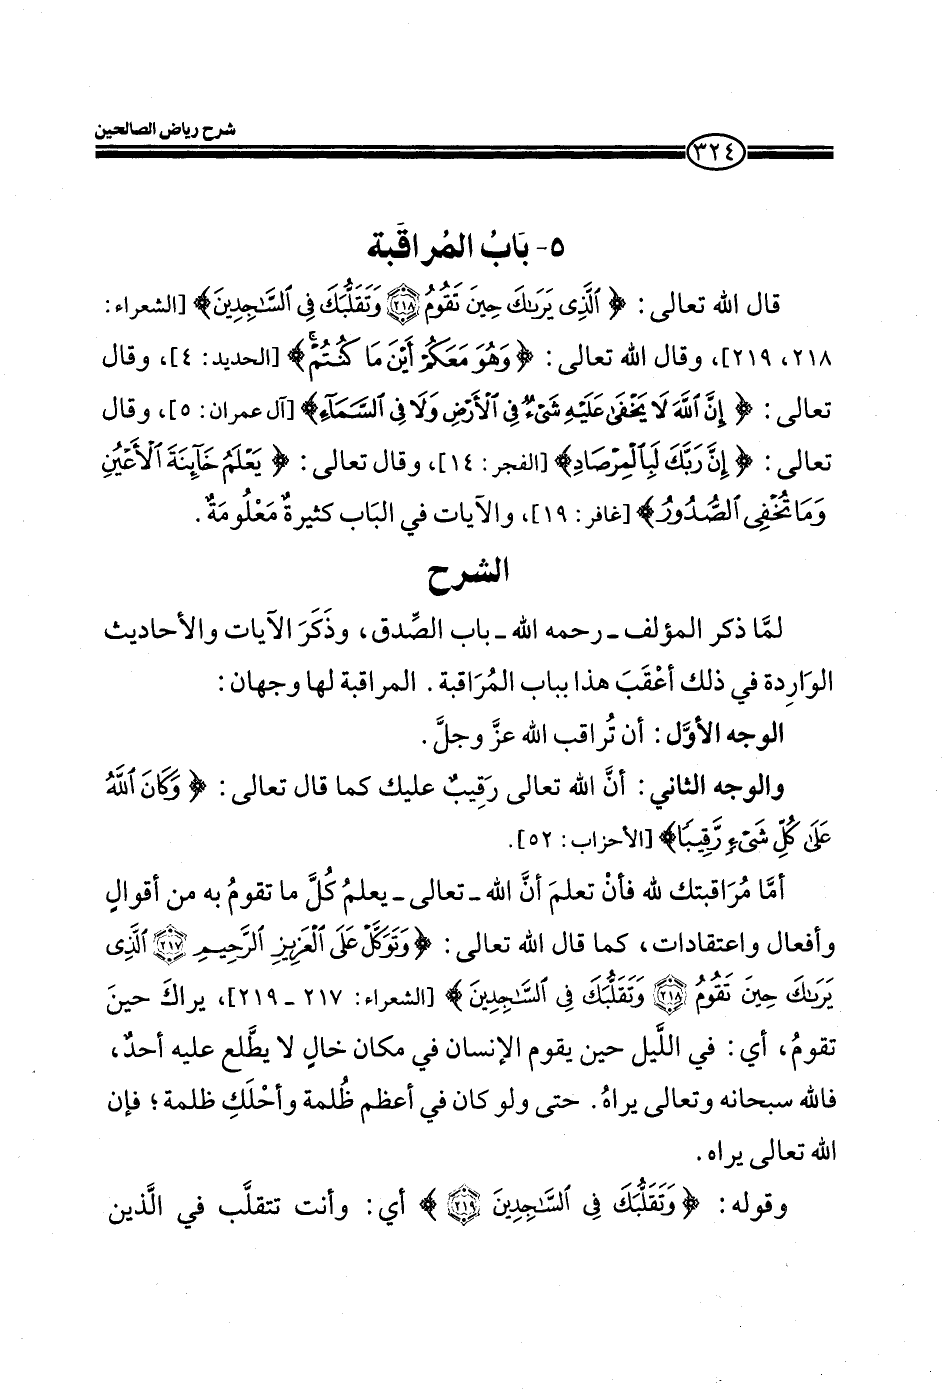 شرح رياض الصالحين
٣٢٤
٥- بَابُ المُراقَبة
قال الله تعالى: ﴿ ٱلَّذِى يَرَىٰكَ حِينَ تَقُومُ ۝٢١٨ وَتَقَلُّبَكَ فِى ٱلسَّـٰجِدِينَ﴾ [الشعراء:
٢١٨، ٢١٩]، وقال الله تعالى: ﴿ وَهُوَ مَعَكُمْ أَيْنَ مَا كُنتُمْ ۚ﴾ [الحديد: ٤]، وقال
تعالى: ﴿ إِنَّ ٱللَّهَ لَا يَخْفَىٰ عَلَيْهِ شَىْءٌ فِى ٱلْأَرْضِ وَلَا فِى ٱلسَّمَآءِ﴾ [آل عمران: ٥]، وقال
تعالى: ﴿ إِنَّ رَبَّكَ لَبِٱلْمِرْصَادِ﴾ [الفجر: ١٤]، وقال تعالى: ﴿ يَعْلَمُ خَآئِنَةَ ٱلْأَعْيُنِ
وَمَا تُخْفِى ٱلصُّدُورُ﴾ [غافر: ١٩]، والآيات في البَاب كثيرةٌ مَعْلُومَةٌ.
الشرح
لمَّا ذكر المؤلف ـ رحمه الله ـ باب الصِّدق، وذَكَرَ الآيات والأحاديث
الوَارِدة في ذلك أعْقَبَ هذا بباب المُرَاقبة. المراقبة لها وجهان:
الوجه الأوَّل: أن تُراقب الله عزَّ وجلَّ.
والوجه الثاني: أنَّ الله تعالى رَقِيبٌ عليك كما قال تعالى: ﴿ وَكَانَ ٱللَّهُ
عَلَىٰ كُلِّ شَىْءٍ رَّقِيبًا﴾ [الأحزاب: ٥٢].
أمَّا مُرَاقبتك لله فأنْ تعلمَ أنَّ الله ـ تعالى ـ يعلمُ كُلَّ ما تقومُ به من أقوالٍ
وأفعال واعتقادات، كما قال الله تعالى: ﴿ وَتَوَكَّلْ عَلَى ٱلْعَزِيزِ ٱلرَّحِيمِ ۝٢١٧ ٱلَّذِى
يَرَىٰكَ حِينَ تَقُومُ ۝٢١٨ وَتَقَلُّبَكَ فِى ٱلسَّـٰجِدِينَ ﴾ [الشعراء: ٢١٧ ـ ٢١٩]، يراكَ حينَ
تقومُ، أي: في اللَّيل حين يقوم الإنسان في مكان خالٍ لا يطَّلع عليه أحدٌ،
فالله سبحانه وتعالى يراهُ. حتى ولو كان في أعظم ظُلمة وأحْلَكِ ظلمة؛ فإن
الله تعالى يراه.
وقوله: ﴿ وَتَقَلُّبَكَ فِى ٱلسَّـٰجِدِينَ ۝٢١٩ ﴾ أي: وأنت تتقلَّب في الَّذين